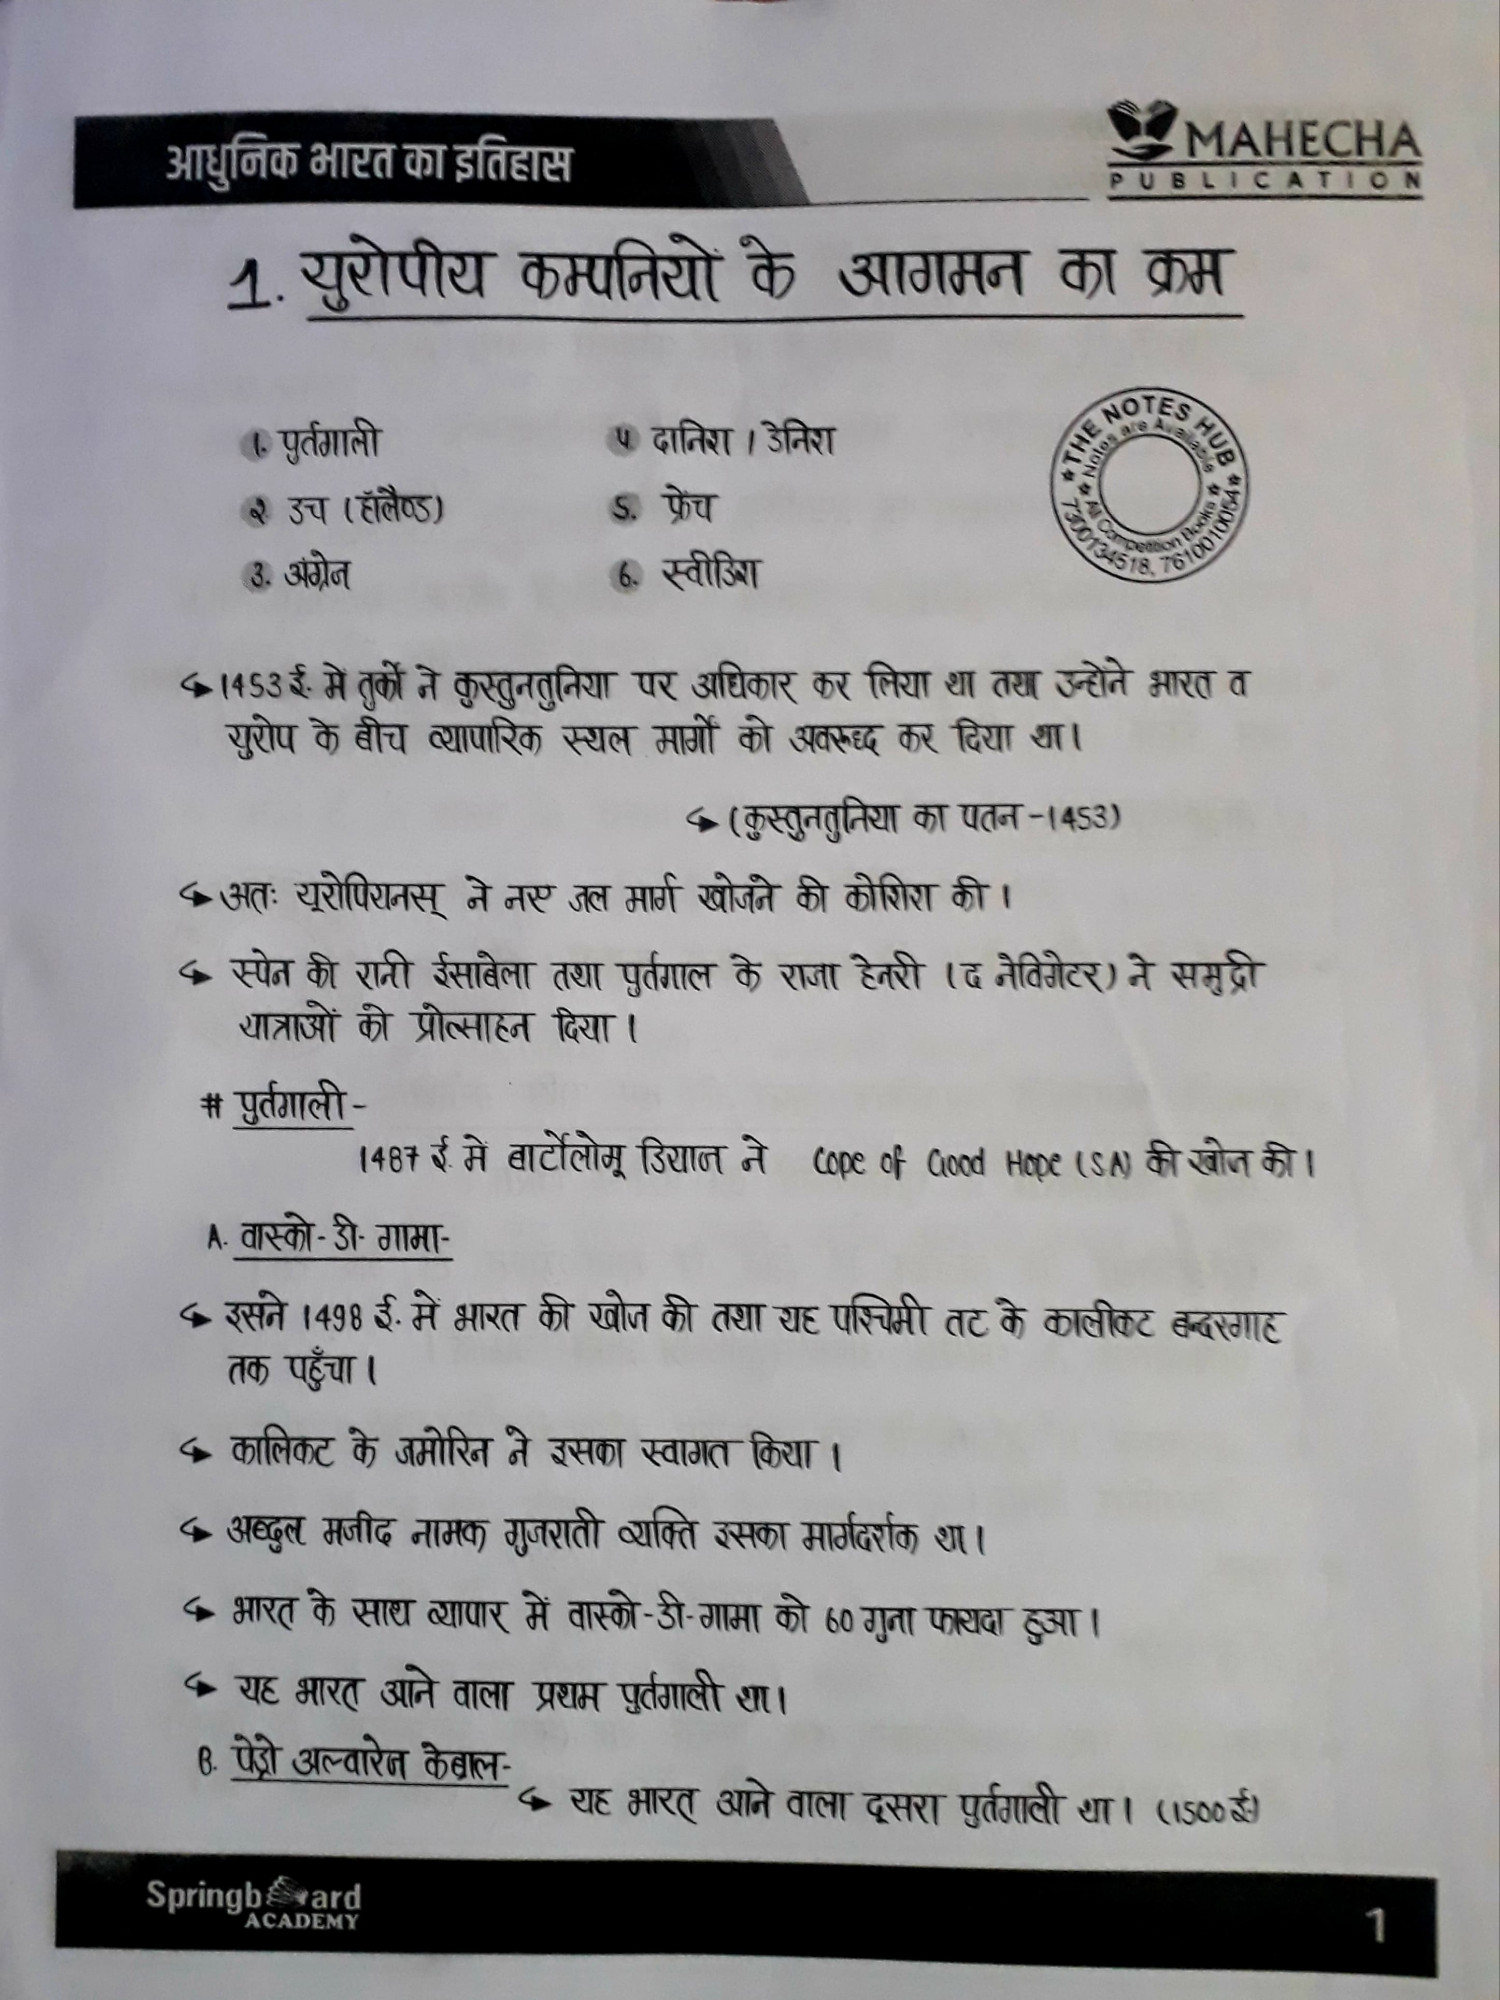 आधुनिक भारत का इतिहास
MAHECHA
PUBLICATION
1. युरोपीय कम्पनियों के आगमन का क्रम
1. पुर्तगाली
4 दानिश / डेनिश
२ डच (हॉलैण्ड)
5. फ्रेंच
3. अंग्रेज
6. स्वीडिश
THE NOTES HUB
Notes are Available
All Competition Books
7300134518, 7610010054
↪ 1453 ई. में तुर्को ने कुस्तुनतुनिया पर अधिकार कर लिया था तथा उन्होंने भारत व
युरोप के बीच व्यापारिक स्थल मार्गों को अवरूद्ध कर दिया था।
↪ (कुस्तुनतुनिया का पतन -1453)
↪ अतः यूरोपियनस् ने नए जल मार्ग खोजने की कोशिश की ।
↪ स्पेन की रानी ईसाबेला तथा पुर्तगाल के राजा हेनरी (द नेविगेटर) ने समुद्री
यात्राओं को प्रोत्साहन दिया ।
# पुर्तगाली -
1487 ई. में बार्टोलोमू डियाज ने Cope of Good Hope (S.A) की खोज की ।
A. वास्को - डी - गामा -
↪ इसने 1498 ई. में भारत की खोज की तथा यह पश्चिमी तट के कालीकट बन्दरगाह
तक पहुँचा ।
↪ कालिकट के जमोरिन ने इसका स्वागत किया ।
↪ अब्दुल मजीद नामक गुजराती व्यक्ति इसका मार्गदर्शक था ।
↪ भारत के साथ व्यापार में वास्को - डी - गामा को 60 गुना फायदा हुआ ।
↪ यह भारत आने वाला प्रथम पुर्तगाली था ।
B. पेड्रो अल्वारेज केब्राल -
↪ यह भारत आने वाला दूसरा पुर्तगाली था । (1500 ई.)
Springboard
ACADEMY
1